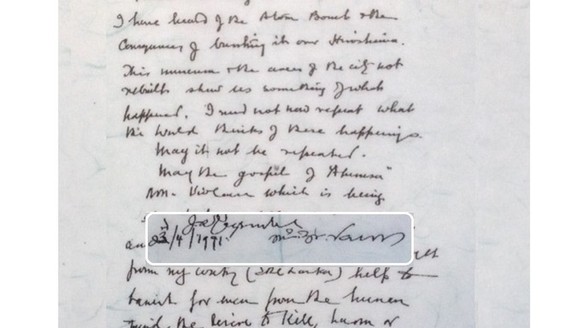 I have heard of the Atom Bomb & the
of bursting it over Hiroshima.
This museum & the areas of the city not
rebuilt show us something of what
happened. I need not now repeat what
the world thinks of these happenings.
May it not be repeated.
May the gospel of "Ahimsa"
Non-Violence which is being
23/4/1971
from my country (Sri Lanka) help to
banish for ever from the human
mind, the desire to kill, harm or